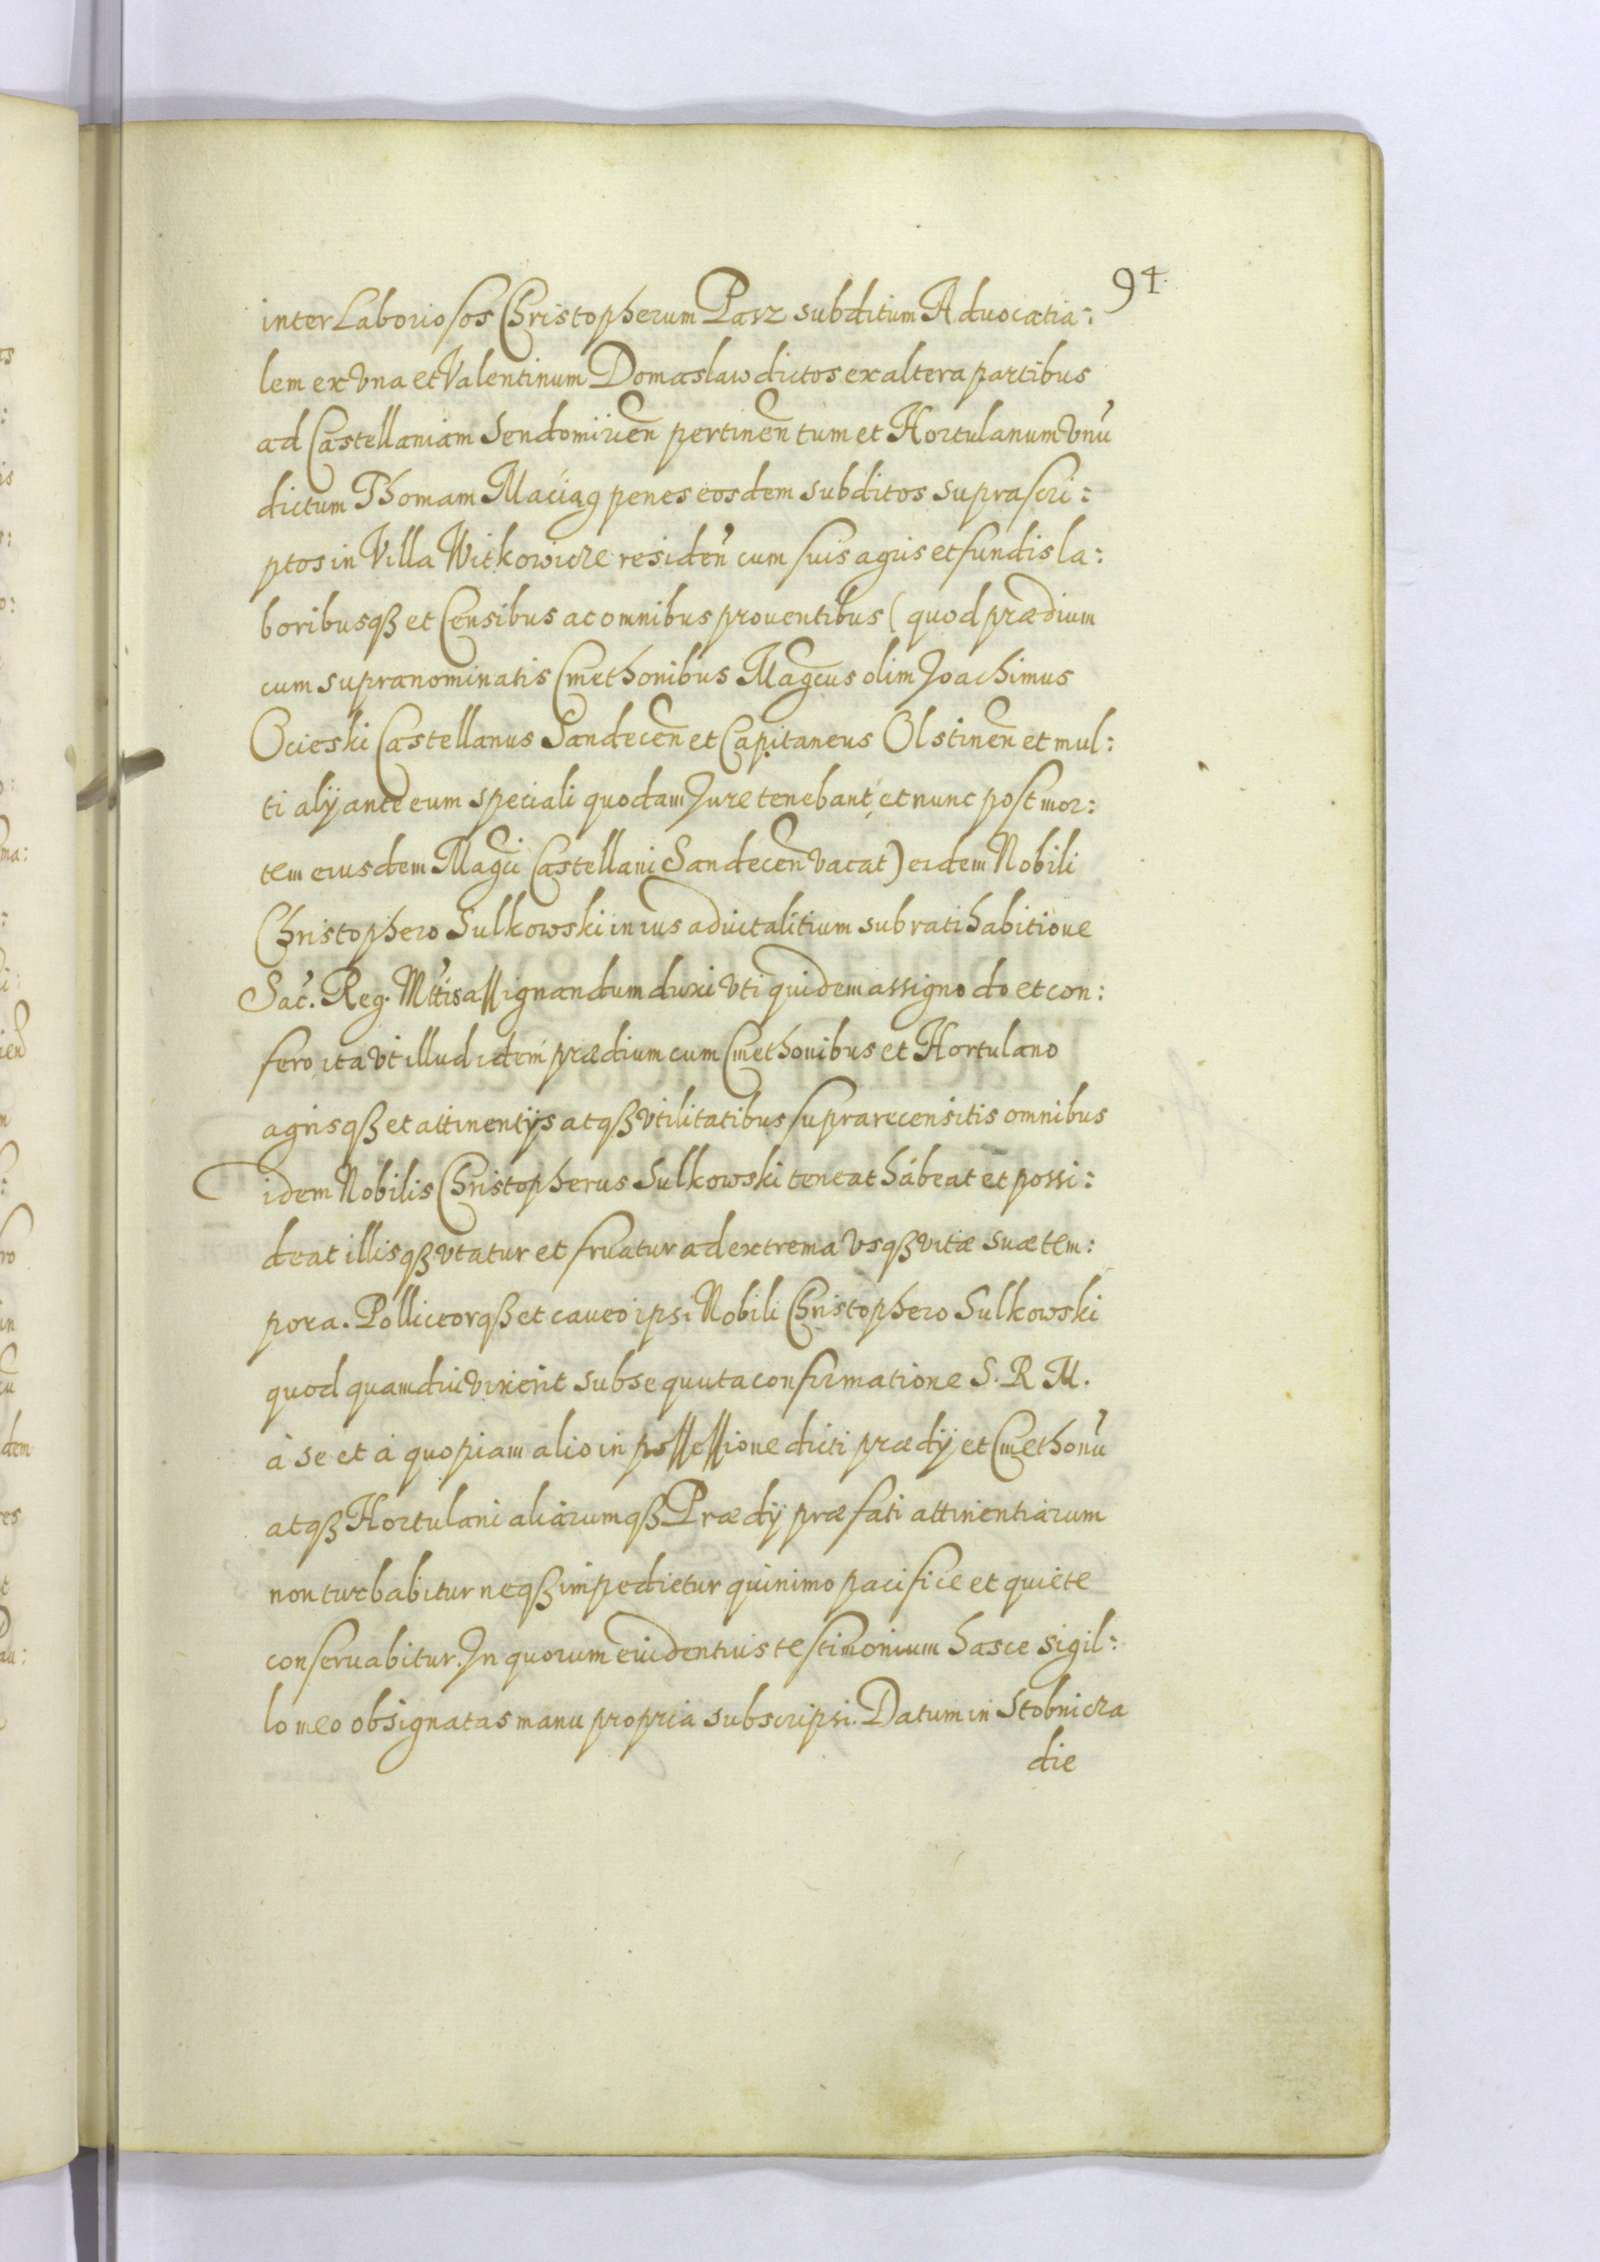 94.
inter Laboriosos Christopherum Parz subditum Advocatia:
lem ex vna et Valentinum Domaslaw dictos ex altera partibus
ad Castellaniam Sendomirien̄ pertinen̄ tum et Hortulanum vnū
dictum Thomam Maciąg penes eosdem subditos suprascri:
ptos in Villa Witkowicze residen̄ cum suis agris et fundis la:
boribusqꝫ et Censibus ac omnibus prouentibus ( quod prædium
cum supranominatis Cmethonibus Magcus olim Joachimus
Ocieski Castellanus Sandecen̄ et Capitaneus Olstinen̄ et mul:
ti alÿ ante eum speciali quodam Jure tenebant, et nunc post mor:
tem eiusdem Magci Castellani Sandecen̄ vacat) eidem Nobili
Christophero Sulkowski in ius aduitalitium sub ratihabitione
Sac. Reg. Mttis assignandum duxi vti quidem assigno do et con:
fero ita vt illud idem prædium cum Cmethonibus et Hortulano
agrisqꝫ et attinentÿs atqꝫ vtilitatibus suprarecensitis omnibus
idem Nobilis Christopherus Sulkowski teneat habeat et possi:
deat illisqꝫ vtatur et fruatur ad extrema vsqꝫ vitæ suæ tem:
pora. Polliceorqꝫ et caueo ipsi Nobili Christophero Sulkowski
quod quamdiu vixerit subsequuta confirmatione S. R. M.
à se et à quopiam alio in possessione dicti prædÿ et Cmethonū
atqꝫ Hortulani aliarumqꝫ Prædÿ præfati attinentiarum
non turbabitur neqꝫ impedietur quinimo pacifice et quiete
conseruabitur. In quorum euidentius testimonium hasce sigil:
lo meo obsignatas manu propria subscripsi. Datum in Stobnicza
die